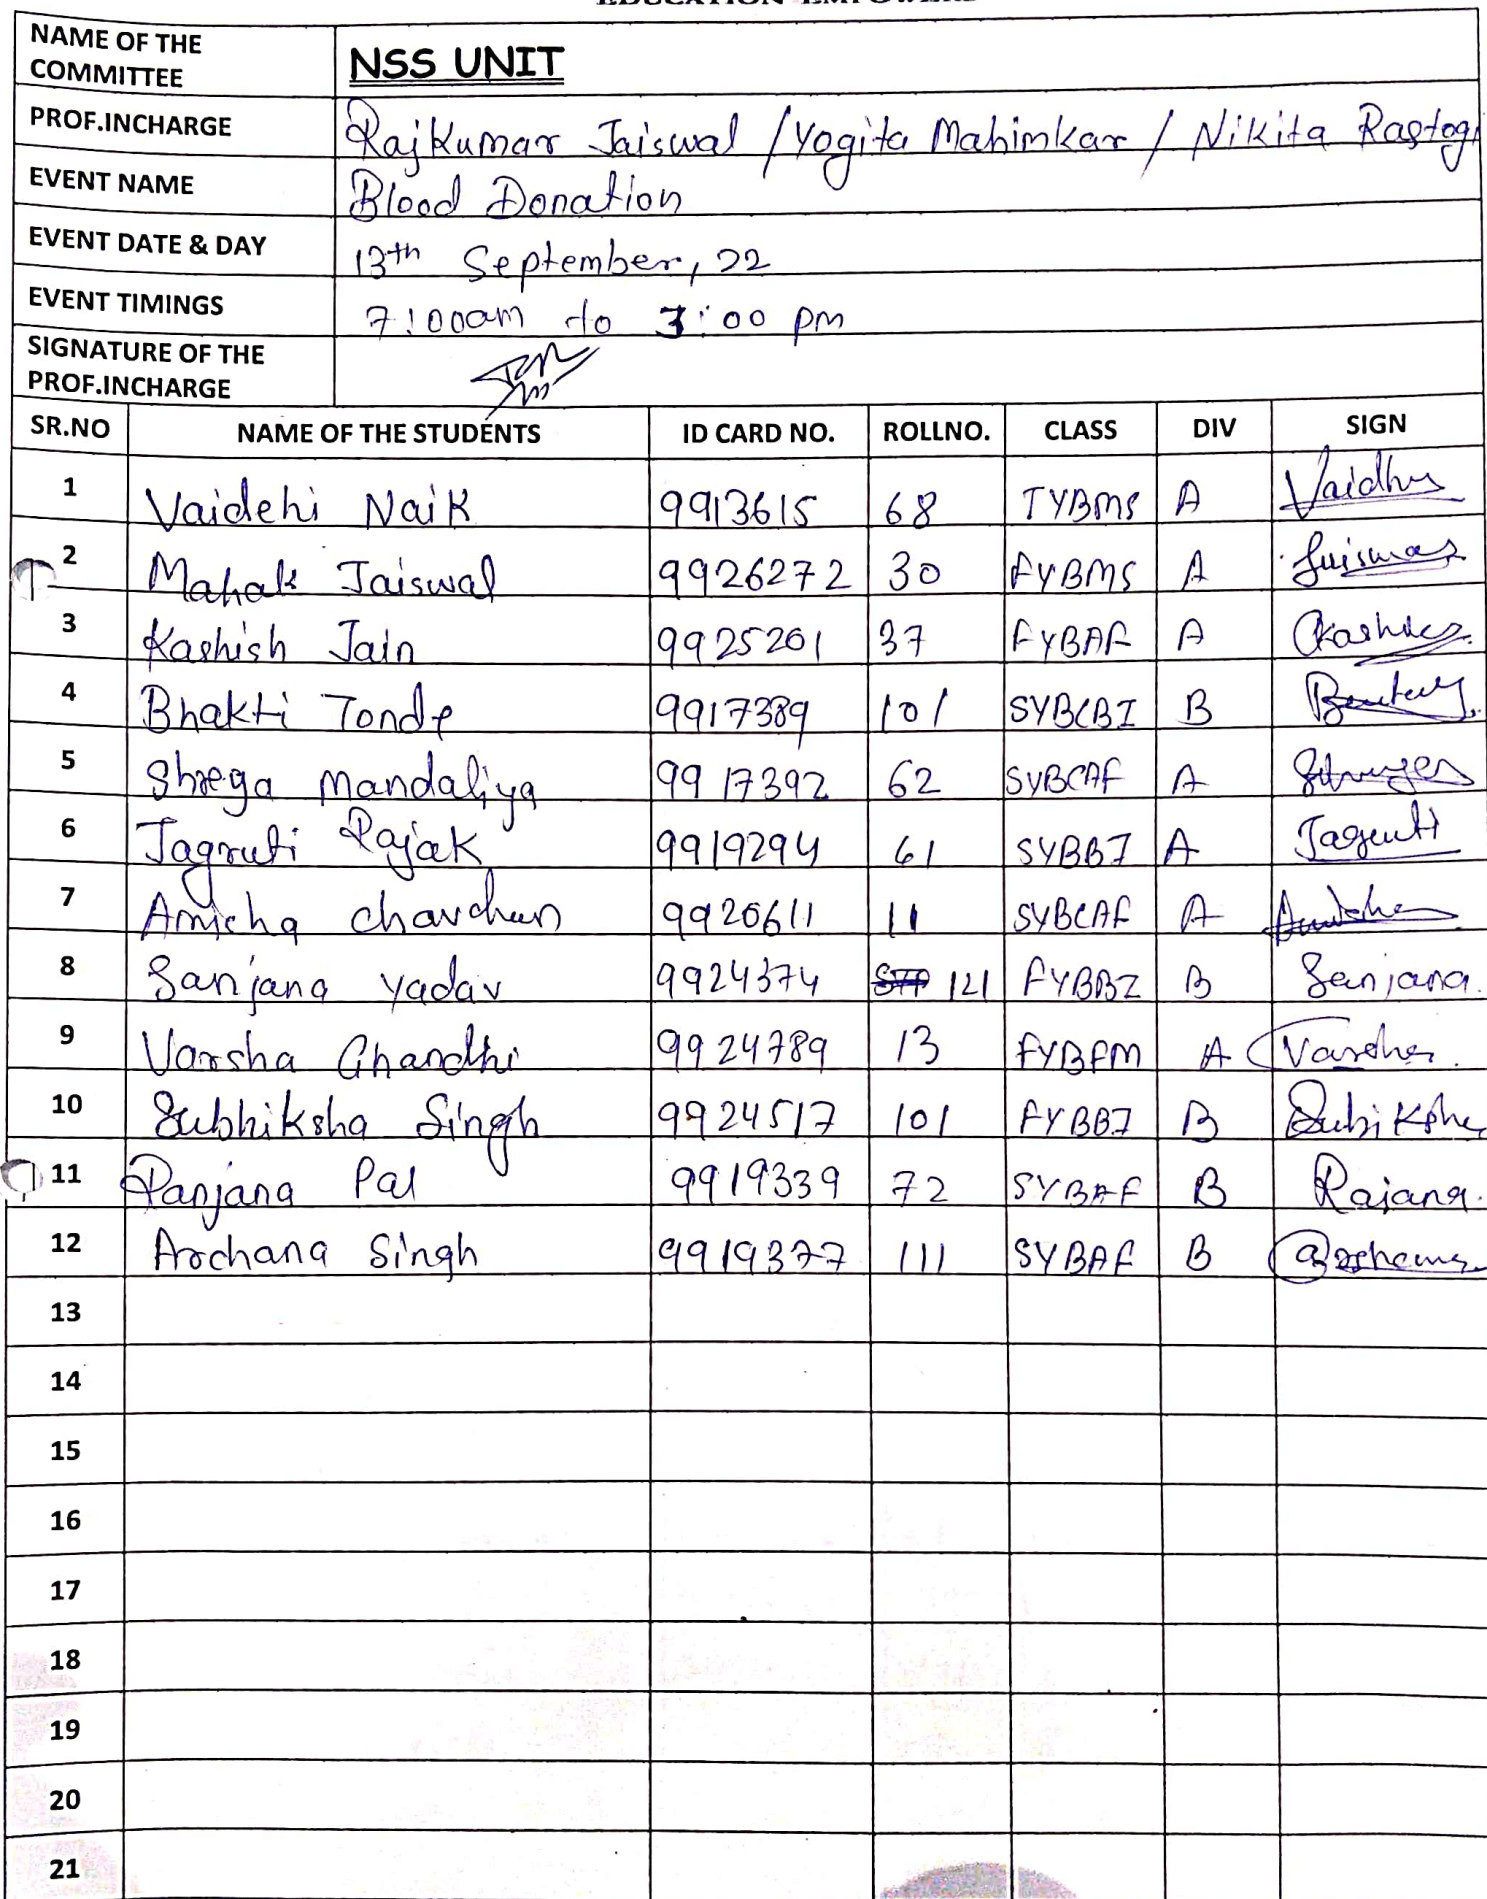 NAME OF THE COMMITTEE NSS UNIT
PROF.INCHARGE Rajkumar Jaiswal / Yogita Mahimkar / Nikita Rastogi
EVENT NAME Blood Donation
EVENT DATE & DAY 13th September, 22
EVENT TIMINGS 7:00am to 3:00 pm
SIGNATURE OF THE PROF.INCHARGE
SR.NO NAME OF THE STUDENTS ID CARD NO. ROLLNO. CLASS DIV SIGN
1 Vaidehi Naik 9913615 68 TYBMS A
2 Mahak Jaiswal 9926272 30 FYBMS A
3 Kashish Jain 9925201 37 FYBAF A
4 Bhakti Tonde 9917389 101 SYBCBI B
5 Shreya Mandaliya 9917392 62 SYBCAF A
6 Jagruti Rajak 9919294 61 SYBBI A Jagruti
7 Amisha chavchan 9920611 11 SYBCAF A
8 Sanjana yadav 9924374 121 FYBBI B Sanjana.
9 Varsha Ghandhi 9924789 13 FYBFM A
10 Subhiksha Singh 9924517 101 FYBBI B
11 Ranjana Pal 9919339 72 SYBAF B Rajana.
12 Archana Singh 9919377 111 SYBAF B
13
14
15
16
17
18
19
20
21